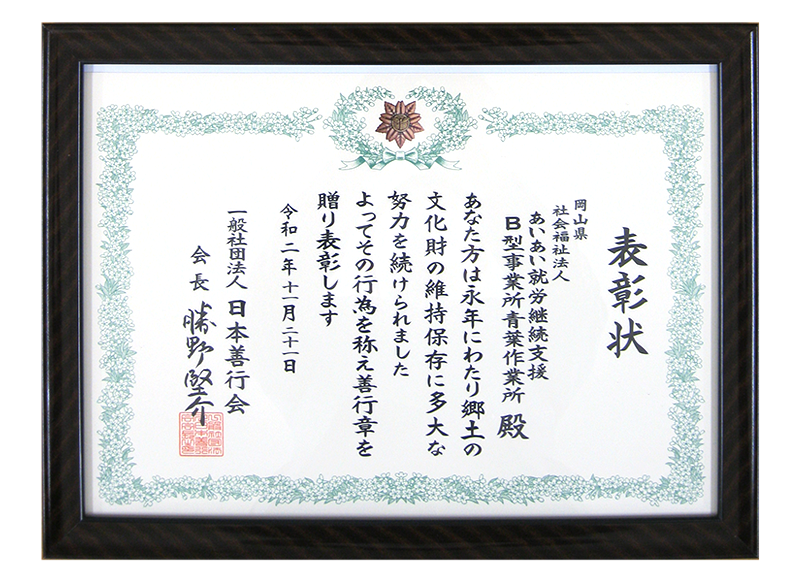 表彰状
岡山県
社会福祉法人
あいあい就労継続支援
B型事業所青葉作業所 殿
あなた方は永年にわたり郷土の
文化財の維持保存に多大な
努力を続けられました
よってその行為を称え善行章を
贈り表彰します
令和二年十一月二十一日
一般社団法人 日本善行会
会長 勝野堅介